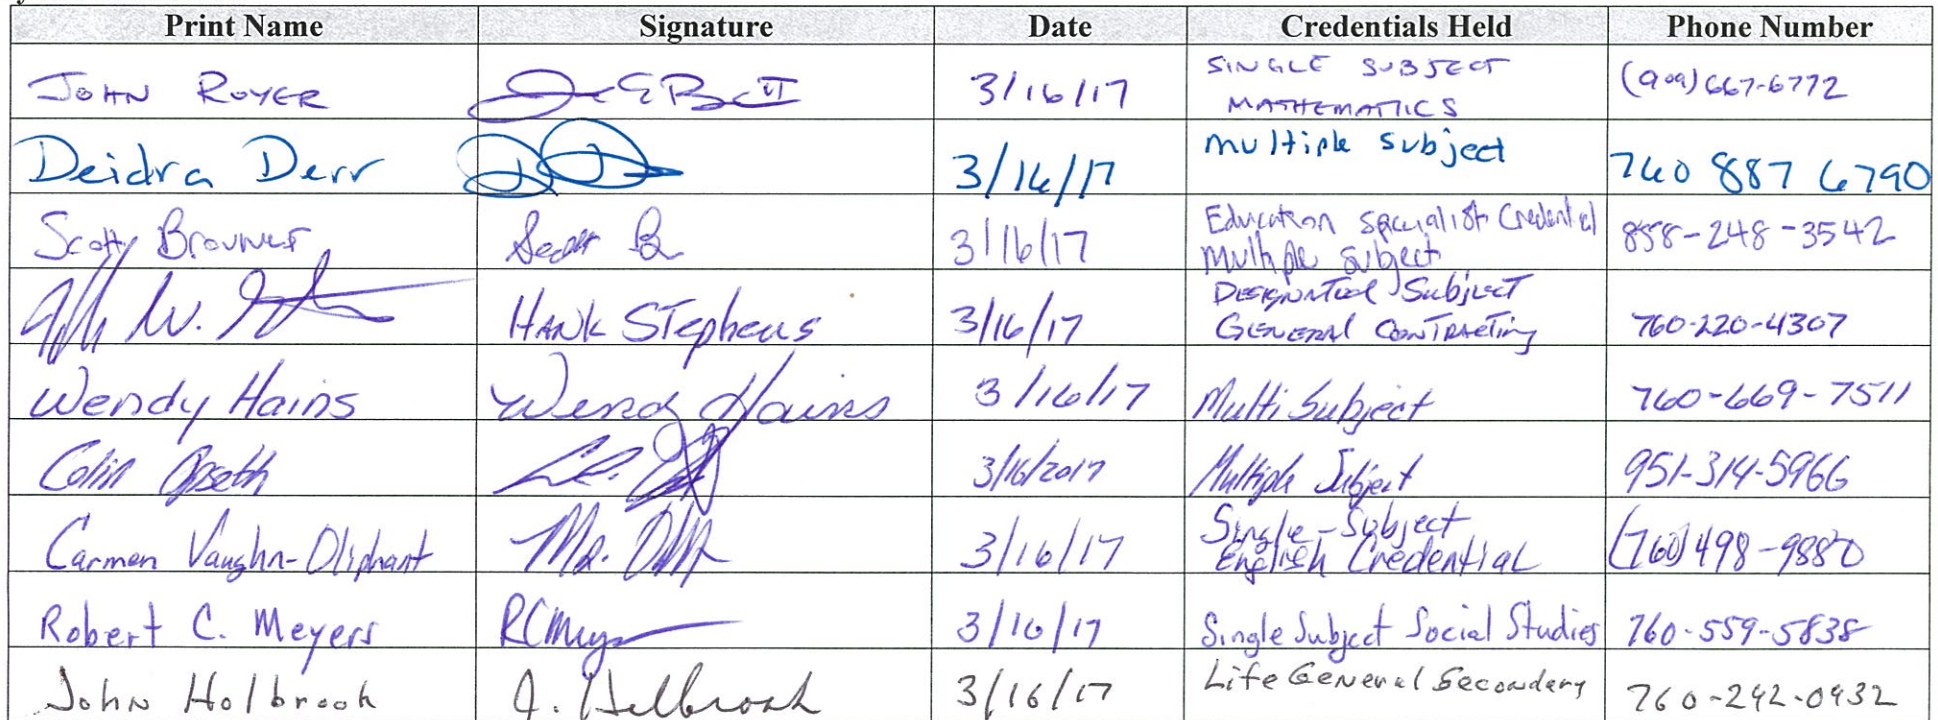 Print Name Signature Date Credentials Held Phone Number
JOHN ROYER 3/16/17 SINGLE SUBJECT
MATHEMATICS (909) 667-6772
Deidra Derr 3/16/17 multiple subject 760 887 6790
Scotty Brouwer 3/16/17 Education Specialist Credential
Multiple Subject 858-248-3542
HANK STephens 3/16/17 DESIGNATED SUBJECT
GENERAL CONTRACTING 760-220-4307
Wendy Hains Wendy Hains 3/16/17 Multi Subject 760-669-7511
Colin Opseth 3/16/2017 Multiple Subject 951-314-5966
Carmen Vaughn-Oliphant 3/16/17 Single-Subject
English Credential (760) 498-9880
Robert C. Meyers RCMeyers 3/16/17 Single Subject Social Studies 760-559-5838
John Holbrook J. Holbrook 3/16/17 Life General Secondary 760-242-0932